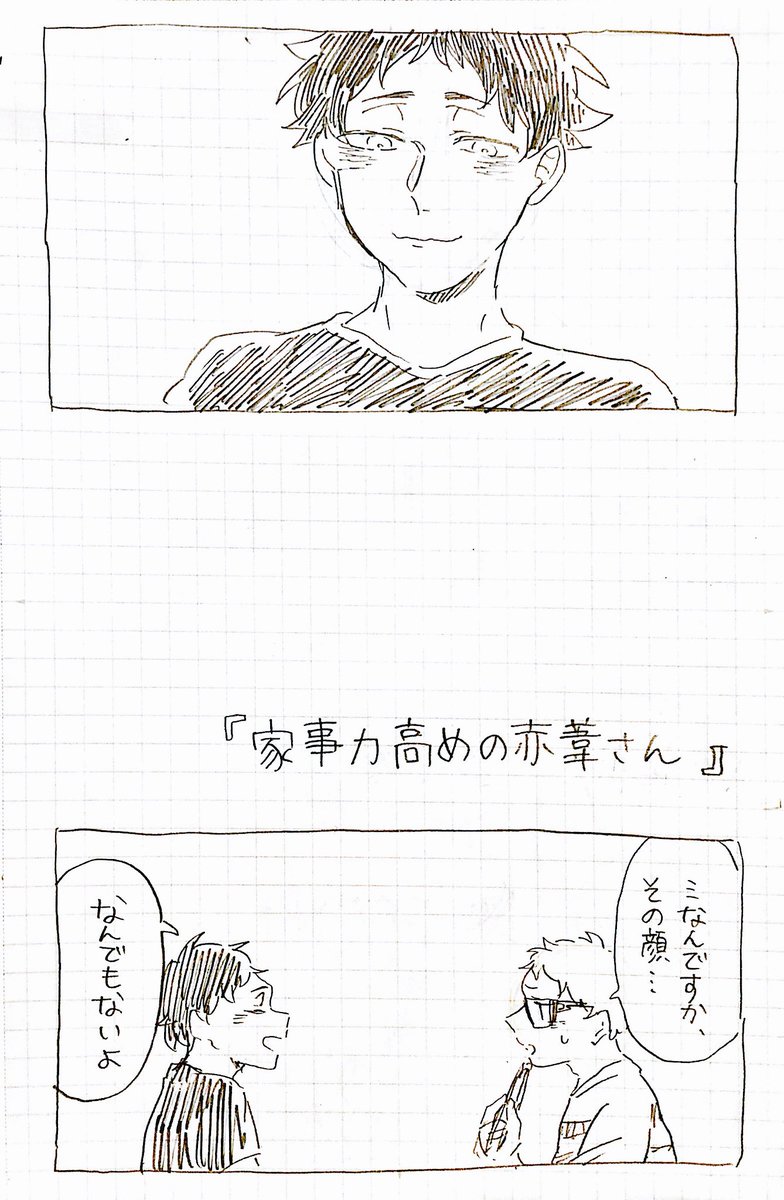 『家事力高めの赤葦さん』
…なんですか、
その顔…
なんでもないよ